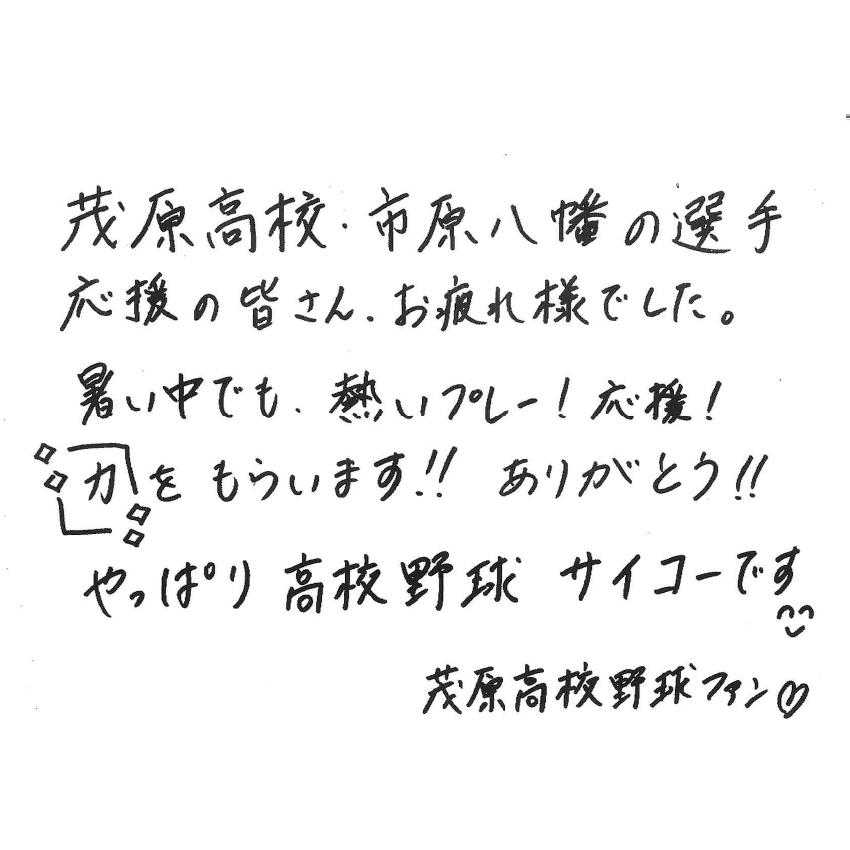 茂原高校・市原八幡の選手
応援の皆さん、お疲れ様でした。
暑い中でも、熱いプレー！応援！
力をもらいます!! ありがとう!!
やっぱり高校野球 サイコーです
茂原高校野球ファン♡